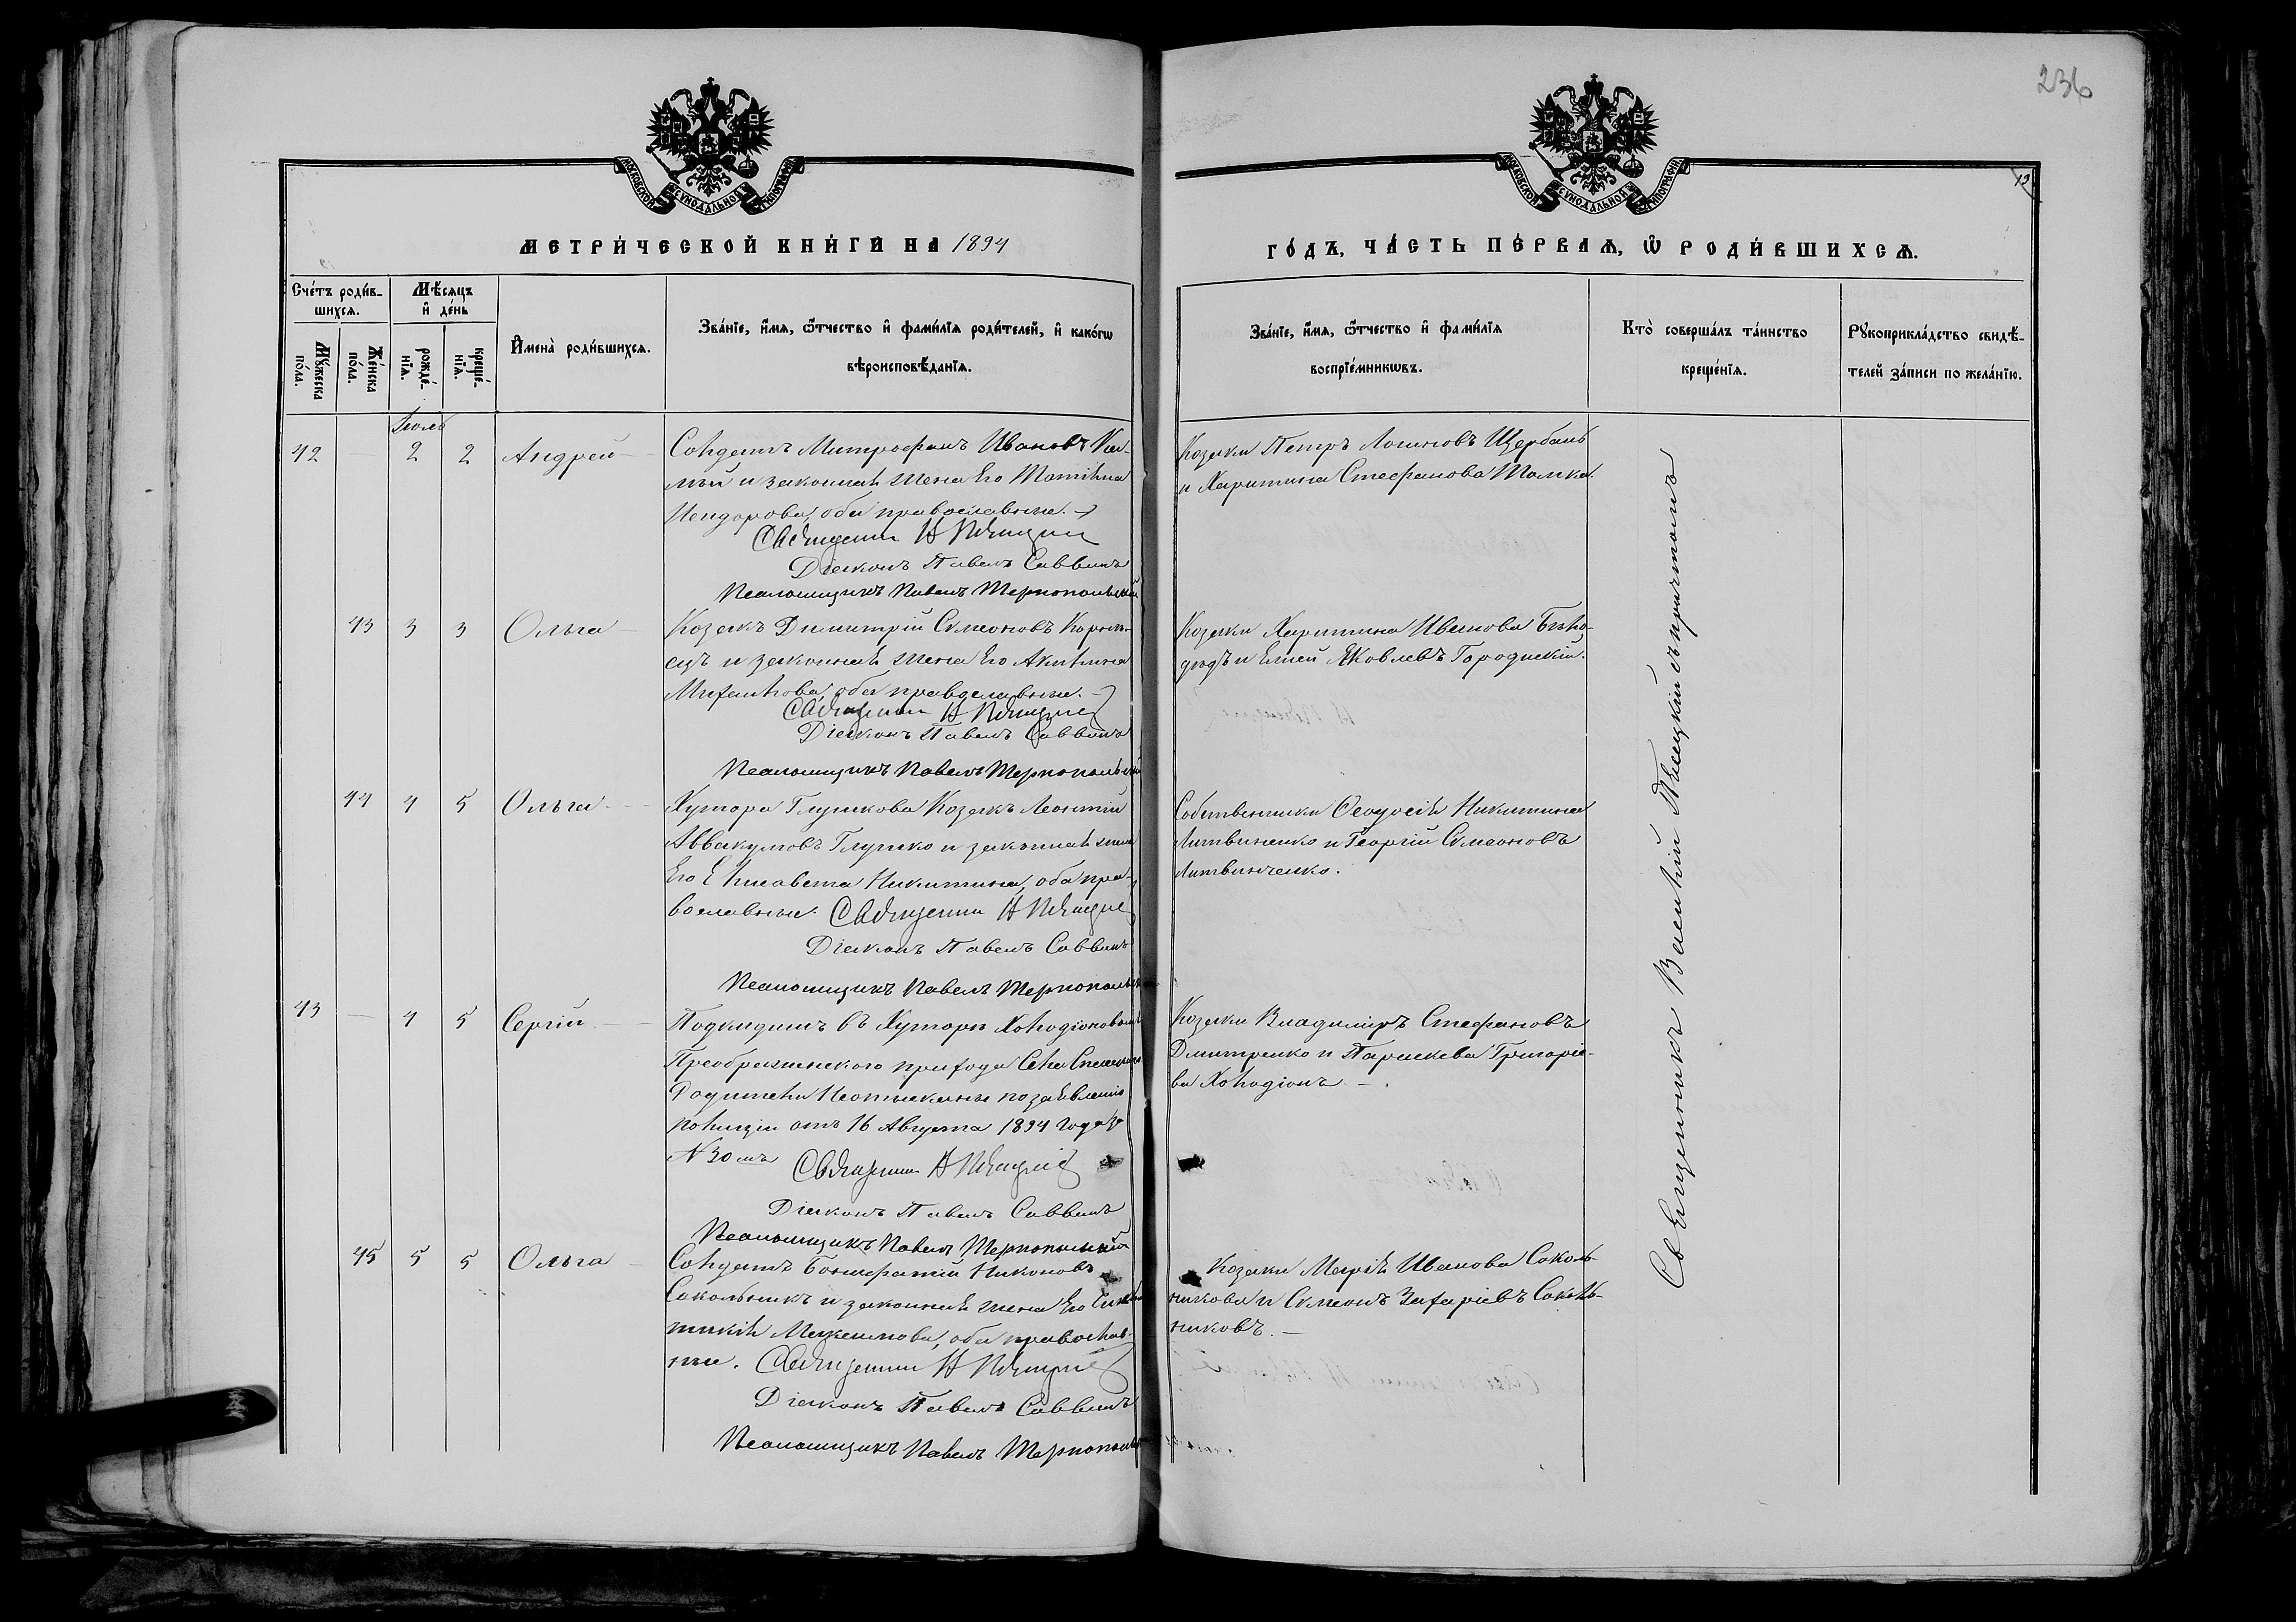 236
МОСКОВСКОЙ СѴНОДАЛЬНОЙ ТИПОГРАФІИ
МОСКОВСКОЙ СѴНОДАЛЬНОЙ ТИПОГРАФІИ
МЕТРИ́ЧЕСКОЙ КНИ́ГИ НА 1894
ГО́ДЪ, ЧА́СТЬ ПЕ́РВАѦ, Ѽ РОДИ́ВШИХСѦ.
Сче́тъ роди́в-
шихсѧ.
Мꙋ́жеска по́ла.
Же́нска по́ла.
Мѣ́сѧцъ
и҆ де́нь
рожде́-нїѧ.
креще́-нїѧ.
И҆мена̀ роди́вшихсѧ.
Зва́нїе, и҆́мѧ, ѻ҆́тчество и҆ фами́лїѧ роди́телей, и҆ како́гѡ
вѣроисповѣ́данїѧ.
Зва́нїе, и҆́мѧ, ѻ҆́тчество и҆ фами́лїѧ
воспрїе́мникѡвъ.
Кто̀ соверша́лъ та́инство
креще́нїѧ.
Рꙋкоприкла́дство свидѣ́-
телей за́писи по жела́нїю.
Іюль
42 — 2 2 Андрей
Солдатъ Митрофанъ Ивановъ
и законная жена его
оба православные.
Священникъ Н
Діаконъ Павелъ Саввинъ
Псаломщикъ Павелъ Тернопольскій
Козаки Петръ Логиновъ Щербань
и Харитина Стефанова
43 3 3 Ольга
Козакъ Димитрій Симеоновъ
и законная жена его Акилина
Михаилова, оба православные.
Священникъ Н
Діаконъ Павелъ Саввинъ
Псаломщикъ Павелъ Тернопольскій
Козаки Харитина Иванова Бѣло-
дѣдъ и Яковлевъ Городискій.
44 4 5 Ольга
Хутора Глушкова Козакъ Леонтій
Аввакумовъ Глушко и законная жена
его Елисавета Никитина, оба пра-
вославные. Священникъ Н
Діаконъ Павелъ Саввинъ
Псаломщикъ Павелъ Тернопольскій
Собственники Ѳеодосія Никитина
Литвиненко и Георгій Симеоновъ
Литвинченко.
43 — 4 5 Сергій
Подкидышъ въ Хуторѣ
Преображенского прихода Села
Родители неотысканы по заявленію
полиціи отъ 16 Августа 1894 года за
Священникъ Н
Діаконъ Павелъ Саввинъ
Псаломщикъ Павелъ Тернопольскій
Козаки Владиміръ Стефановъ
Дмитренко и Параскева Григоріе-
ва Холодіонъ. —
45 5 5 Ольга
Солдатъ Никоновъ
Сокольникъ и законная жена его Син-
тикія Максимова, оба православ-
ные. Священникъ Н
Діаконъ Павелъ Саввинъ
Псаломщикъ Павелъ Тернопольскій
Козаки Марія Иванова Соколь-
никова и Симеонъ Захаріевъ Соколь-
никовъ. —
Священникъ Василій съ причтомъ